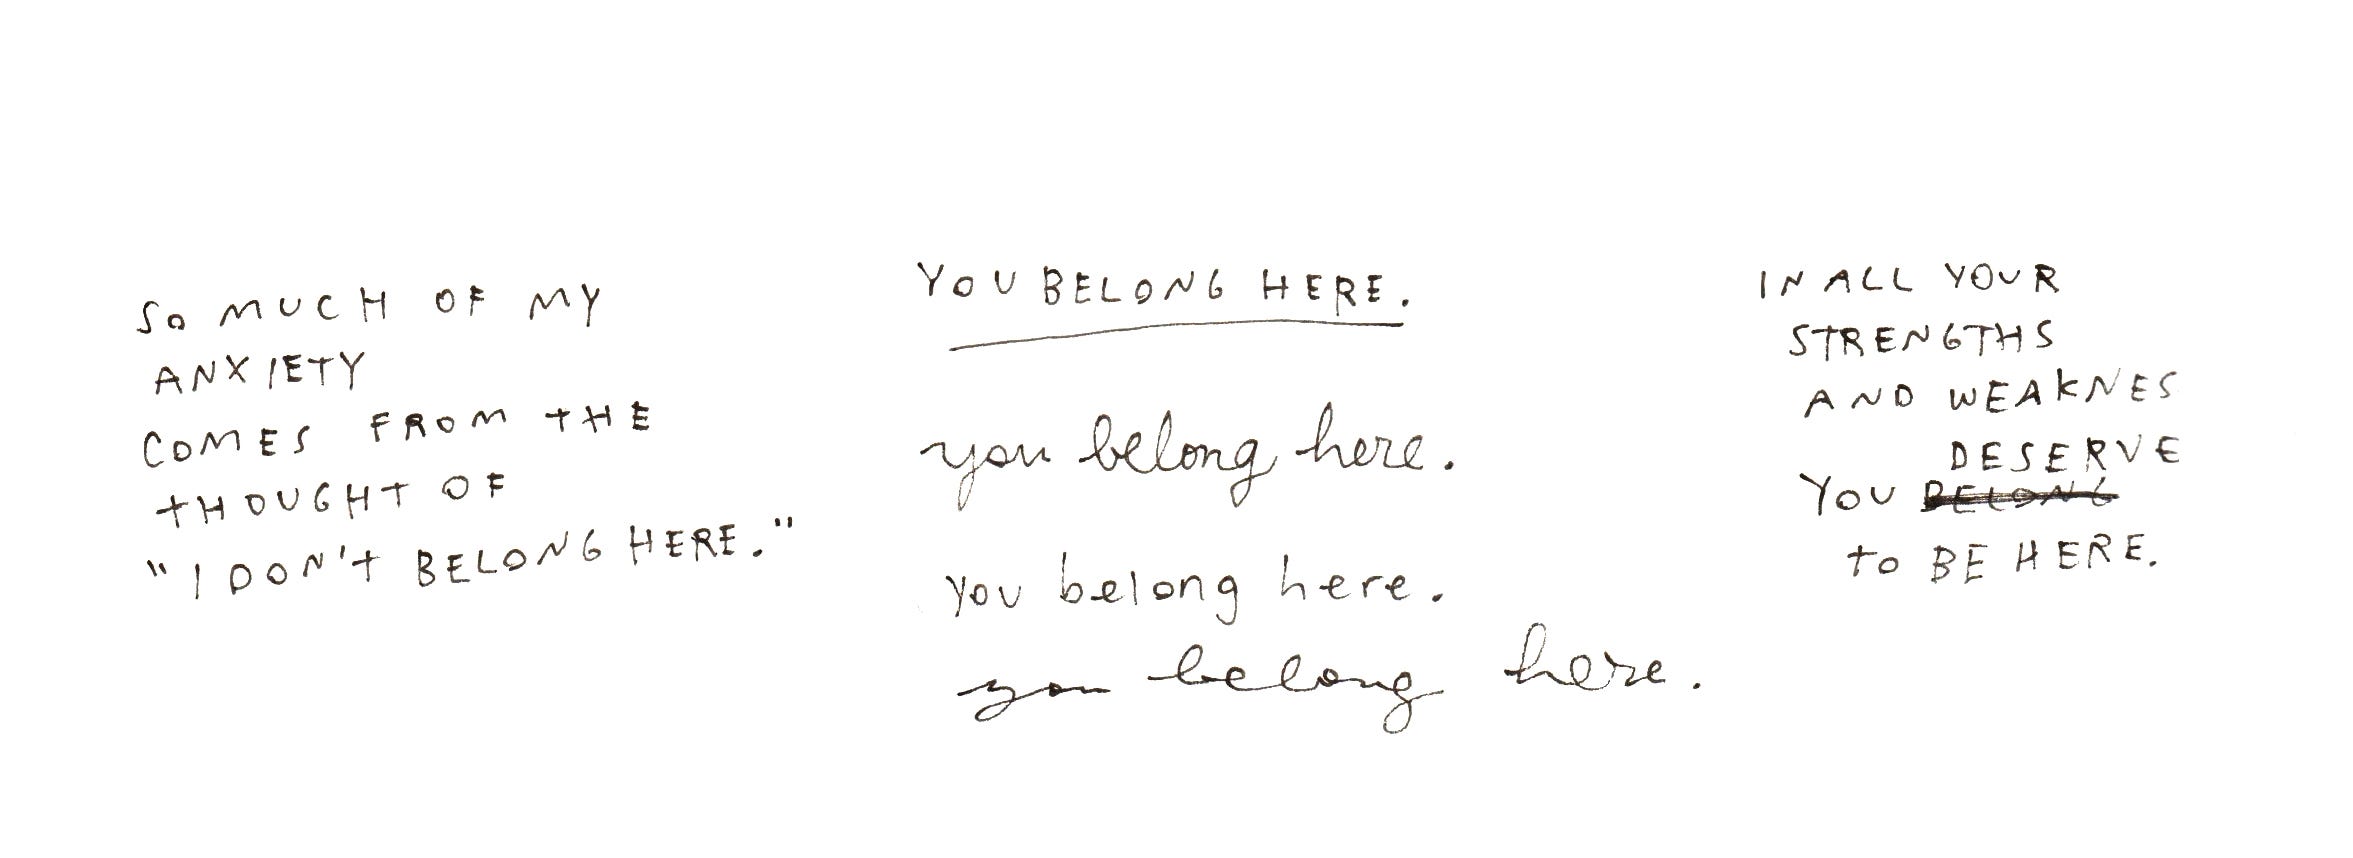 SO MUCH OF MY
ANXIETY
COMES FROM THE
THOUGHT OF
"I DON'T BELONG HERE."
YOU BELONG HERE.
you belong here.
you belong here.
you belong here.
IN ALL YOUR
STRENGTHS
AND WEAKNES
DESERVE
YOU BELONG
TO BE HERE.